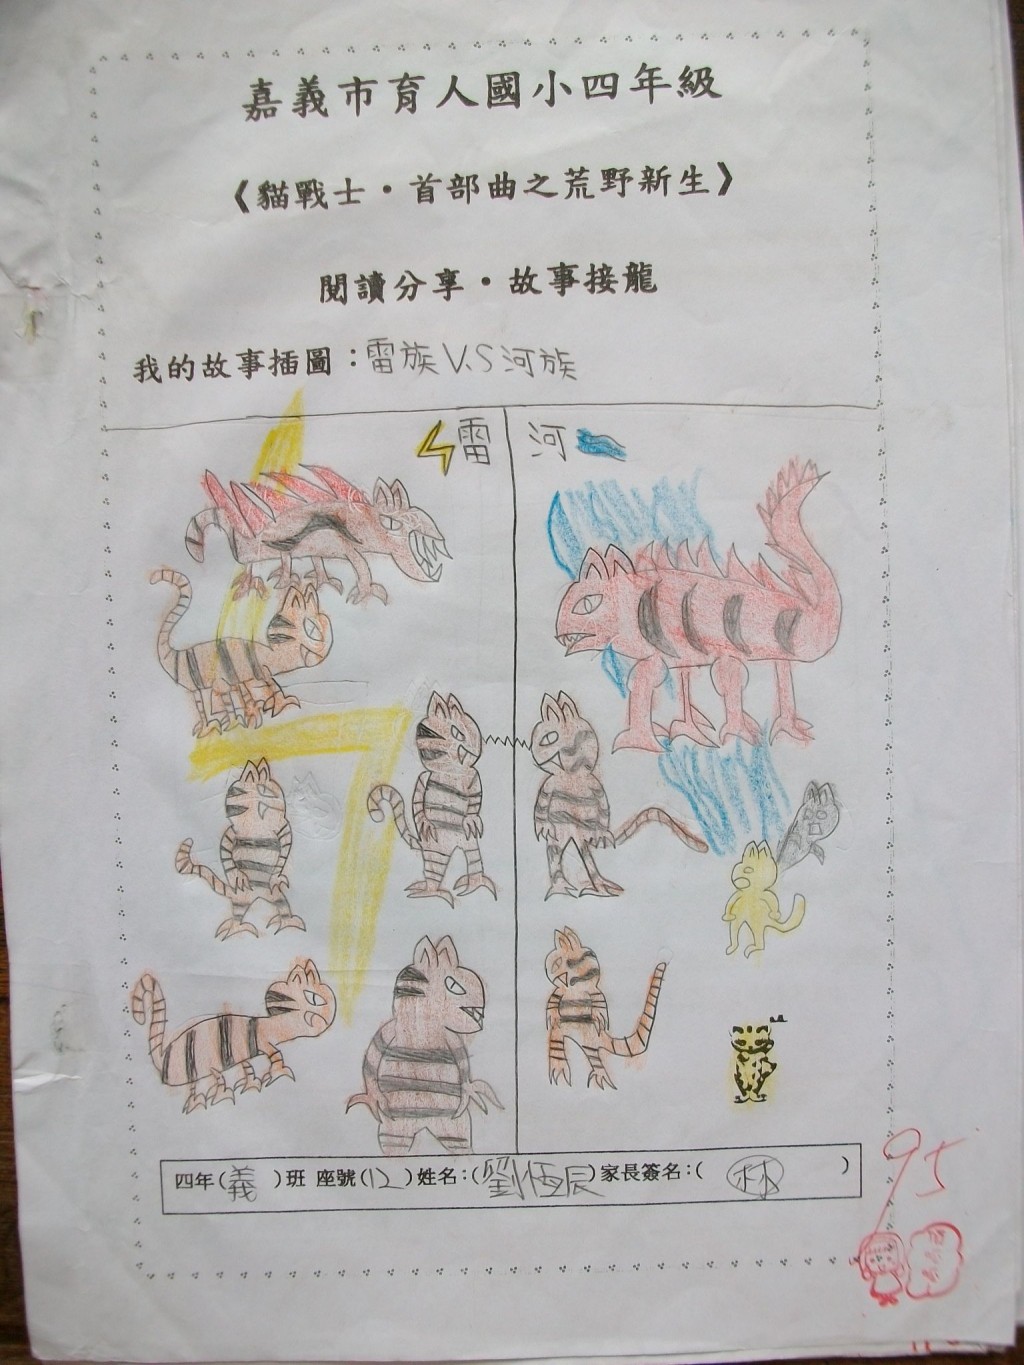 嘉義市育人國小四年級
《貓戰士·首部曲之荒野新生》
閱讀分享·故事接龍
我的故事插圖：雷族V.S河族
雷 河
四年(義)班 座號(12)姓名：(劉恆辰)家長簽名：(林)
95